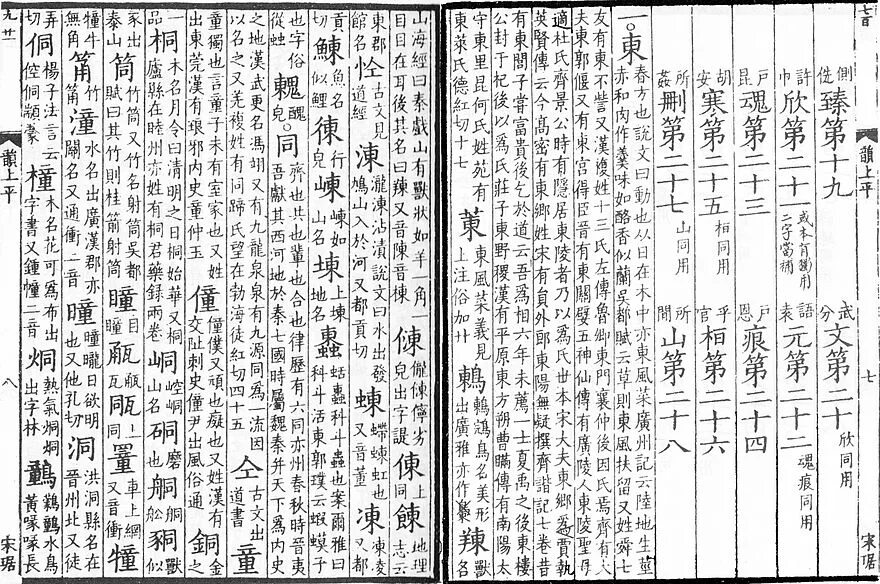 側侁臻第十九 武分文第二十 欣同用
許巾欣第二十一 或本有獨用二字當補 語袁元第二十二 魂痕同用
戶昆魂第二十三 戶恩痕第二十四
胡安寒第二十五 桓同用 乎官桓第二十六
所姦刪第二十七 山同用 所閒山第二十八
一。東 春方也說文曰動也从日在木中亦東風菜廣州記云陸地生莖
赤和肉作羹味如酪香似蘭吳都賦云草則東風扶留又姓舜七
友有東不訾又漢複姓十三氏左傳魯卿東門襄仲後因氏焉齊有大
夫東郭偃又有東宮得臣晉有東關嬖五神仙傳有廣陵人東陵聖母
適杜氏齊景公時有隱居東陵者乃以爲氏世本宋大夫東鄉爲賈執
英賢傳云今高密有東鄉姓宋有員外郎東陽無疑撰齊諧記七卷昔
有東閭子嘗富貴後乞於道云吾爲相六年未薦一士夏禹之後東樓
公封于杞後以爲氏莊子東野稷漢有平原東方朔曹瞞傳有南陽太
守東里昆何氏姓苑有東萊氏德紅切十七 菄 東風菜義見上注俗加艹 鶇 鶇鵍鳥名美形出廣雅亦作 䍶 獸名
韻上平 七 宋琚
山海經曰秦戲山有獸狀如羊一角一目目在耳後其名曰䍶又音陳音棟 𠍀 儱𠍀儜劣皃出字諟 倲 上同 餗 地理志云
東郡館名 𢘐 古文見道經 涷 瀧涷沾漬說文曰水出發鳩山入於河又都貢切 蝀 螮蝀虹也又音董 凍 凍凌又都
貢切 鯟 魚名似鯉 𢔅 行皃 崠 崠如山名 埬 上埬地名 䗦 蛞䗦科斗蟲也案爾雅曰科斗活東郭璞云蝦蟆子
也字俗從虫 䰤 醜皃 。同 齊也共也輩也合也律歷有六同亦州春秋時晉夷吾獻其西河地於秦七國時屬魏秦并天下爲內史
之地漢武更名馮翊又有九龍泉泉有九源同爲一流因以名之又羌複姓有同蹄氏望在勃海徒紅切四十五 仝 古文出道書 童
童獨也言童子未有室家也又姓出東莞漢有琅邪內史童仲玉 僮 僮僕又頑也癡也又姓漢有交趾刺史僮尹出風俗通 銅 金之
一品 桐 木名月令曰清明之日桐始華又桐廬縣在睦州亦姓有桐君藥錄兩卷 峒 崆峒山名 硐 磨也 䑸 䑸舩 𧳆 獸似
豕出泰山 筒 竹筒又竹名射筒吳都賦曰其竹則桂箭射筒 瞳 目瞳 㼧 㼧瓦 㼿 上同 罿 車上網又音衝 犝
犝牛無角 筩 竹筩 潼 水名出廣漢郡亦關名又通衝二音 曈 曈曨日欲明也又他孔切 洞 洪洞縣名在晉州北又徒
弄切 侗 楊子法言云倥侗顓蒙 橦 木名花可爲布出字書又鍾幢二音 烔 熱氣烔烔出字林 水鳥黃喙喙長
韻上平 八 宋琚